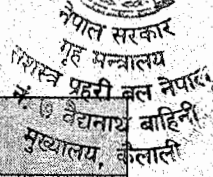 नेपाल सरकार
गृह मन्त्रालय
सशस्त्र प्रहरी बल नेपाल
नं. ७ वैद्यनाथ बाहिनी
मुख्यालय, कैलाली